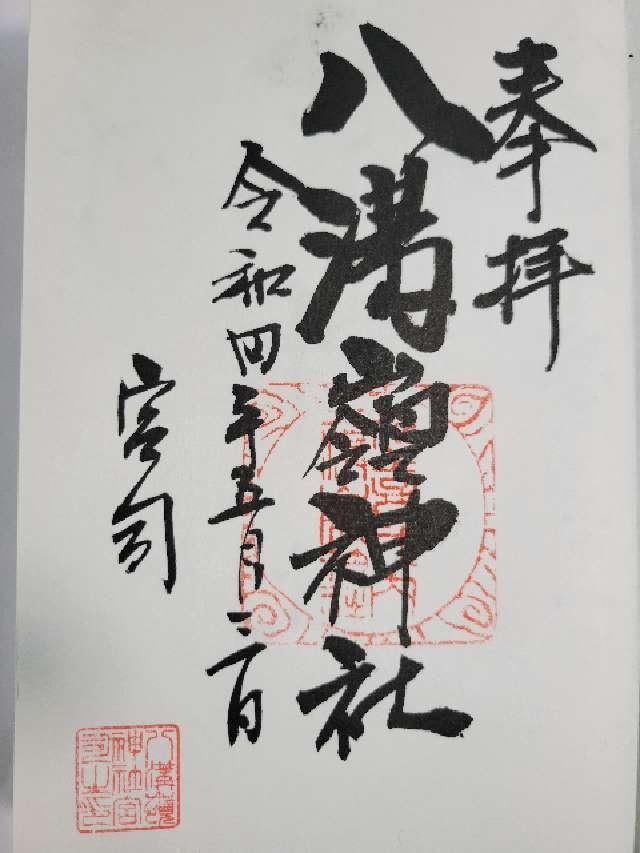 奉拝
八溝嶺神社
令和四年五月三日
宮司
八溝嶺
神社宮
司之印